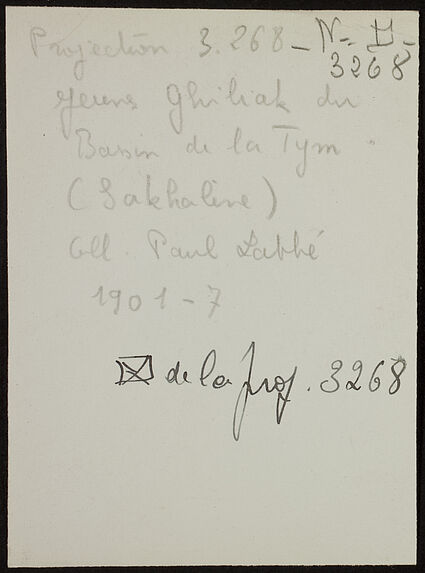 Projection 3.268 - N= H -
3268
Jeune Ghiliak du
Bassin de la Tym.
(Sakhaline)
Coll. Paul Labbé
1901-7
de la proj. 3268